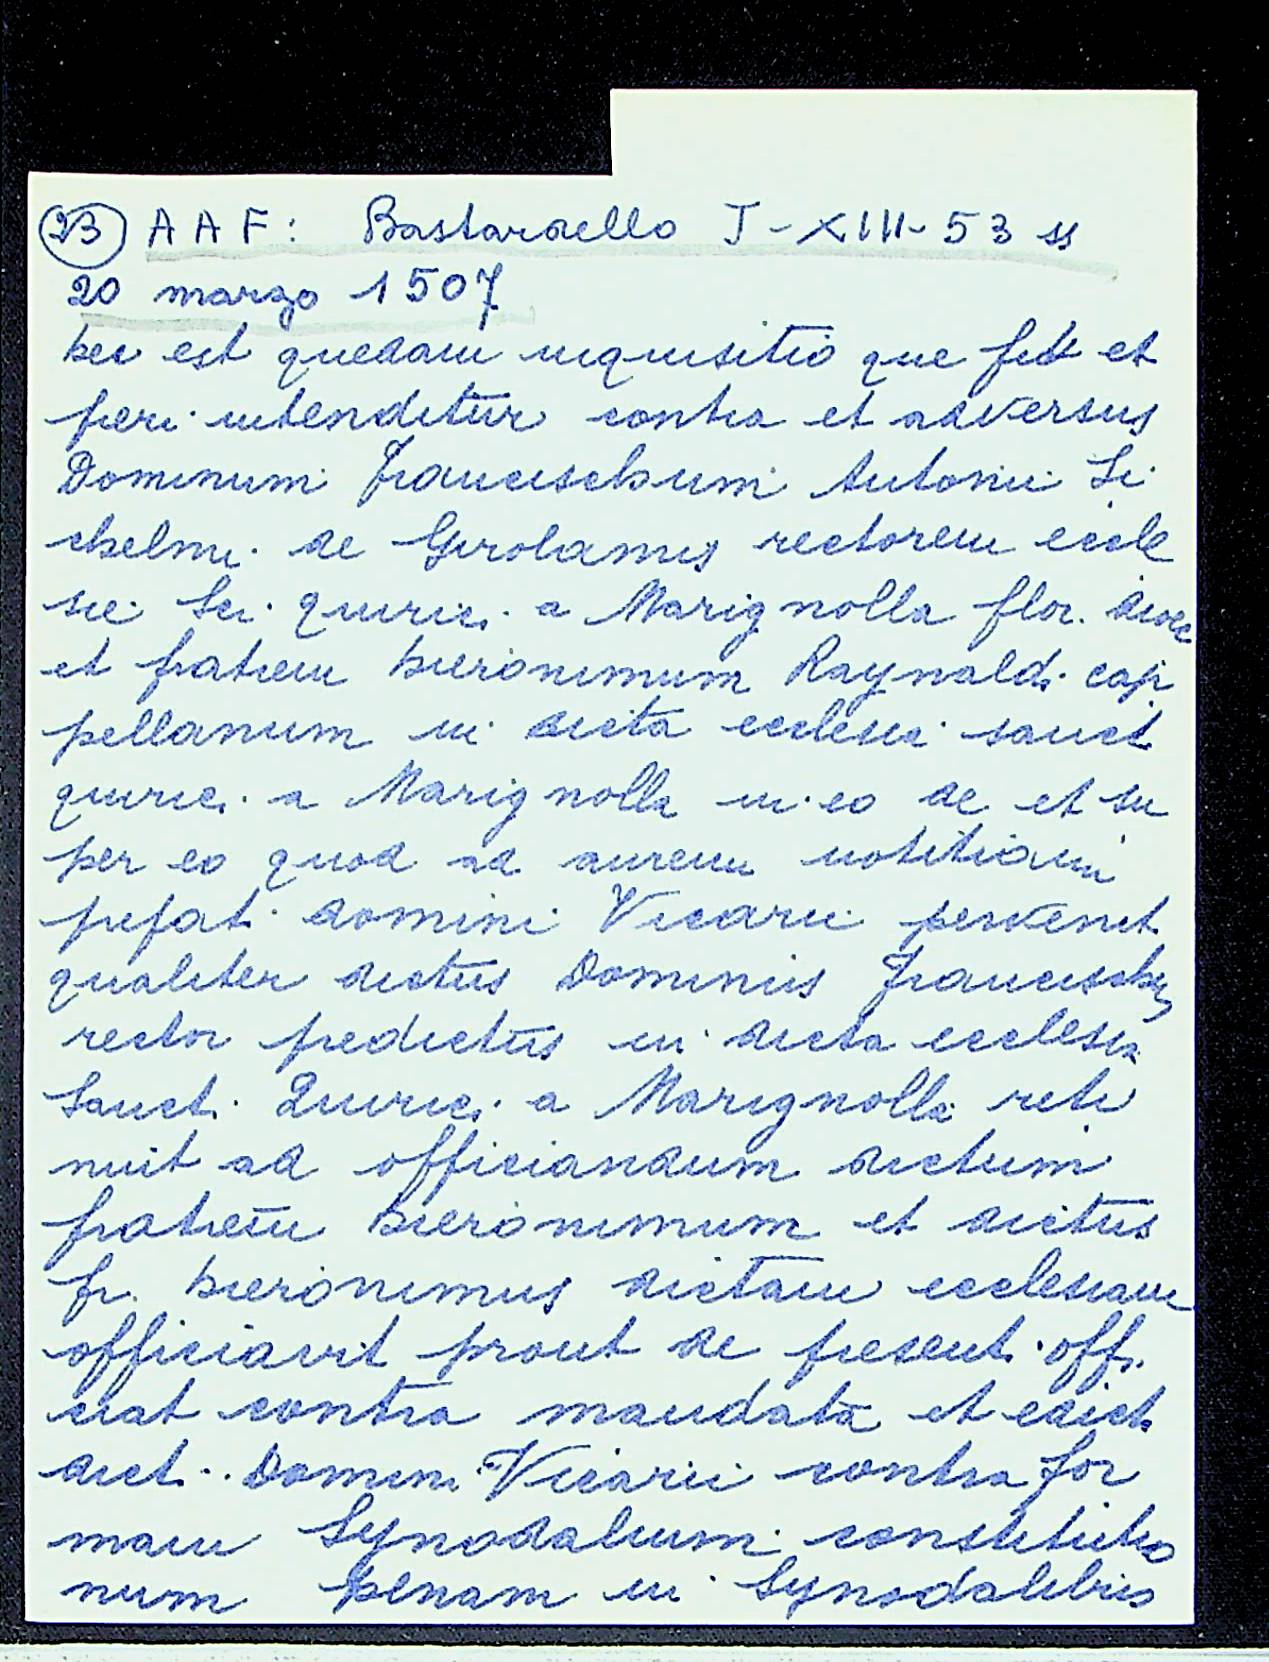 23 AAF: Bastardello J-XIII-53 ss
20 marzo 1507
hec est quedam inquisitio que fit et
fieri intenditur contra et adversus
Dominum Francischum Antonii Li
chelmi de Girolamis rectorem eccle
sie Sci. quirici a Marignolla flor. dioc
et fratrem hieronimum Raynaldi cap
pellanum in dicta ecclesia sancti
quirici a Marignolla in eo de et su
per eo quod ad aurem notitiam
prefati domini Vicarii pervenit
qualiter dictus Dominus Francischus
rector predictus in dicta ecclesia
Sancti Quirici a Marignolla reti
nuit ad officiandum dictum
fratrem hieronimum et dictus
fr. hieronimus dictam ecclesiam
officiavit prout de presenti offi
ciat contra mandata et edicta
dicti Domini Vicarii contra for
mam Synodalium constitutio
num penam in Synodalibus